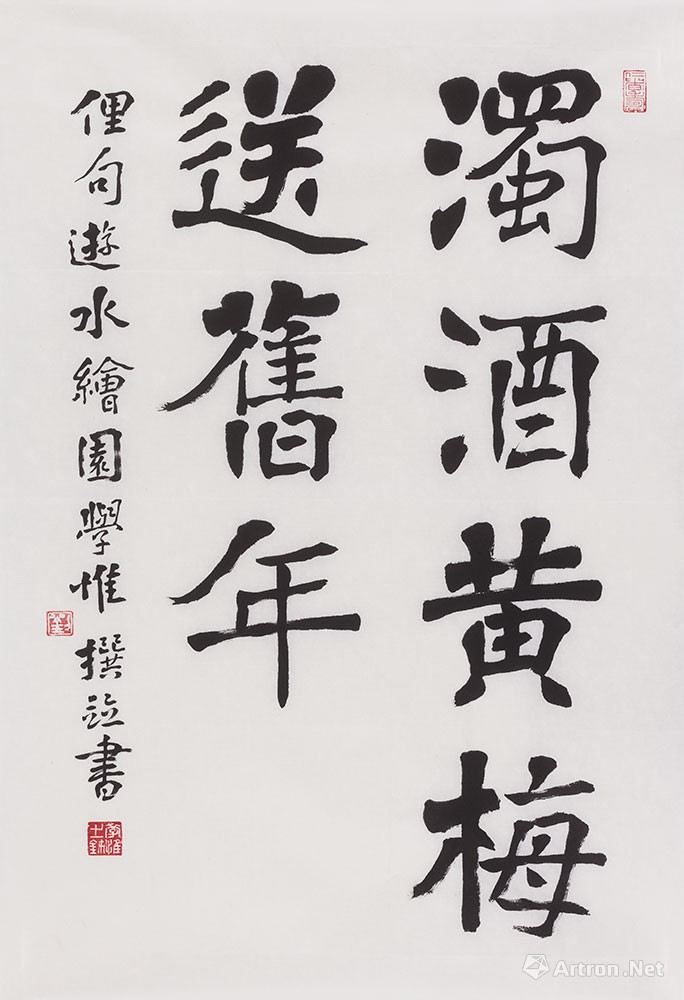 濁酒黄梅
送舊年
俚句遊水繪園學惟撰竝書
Artron.Net